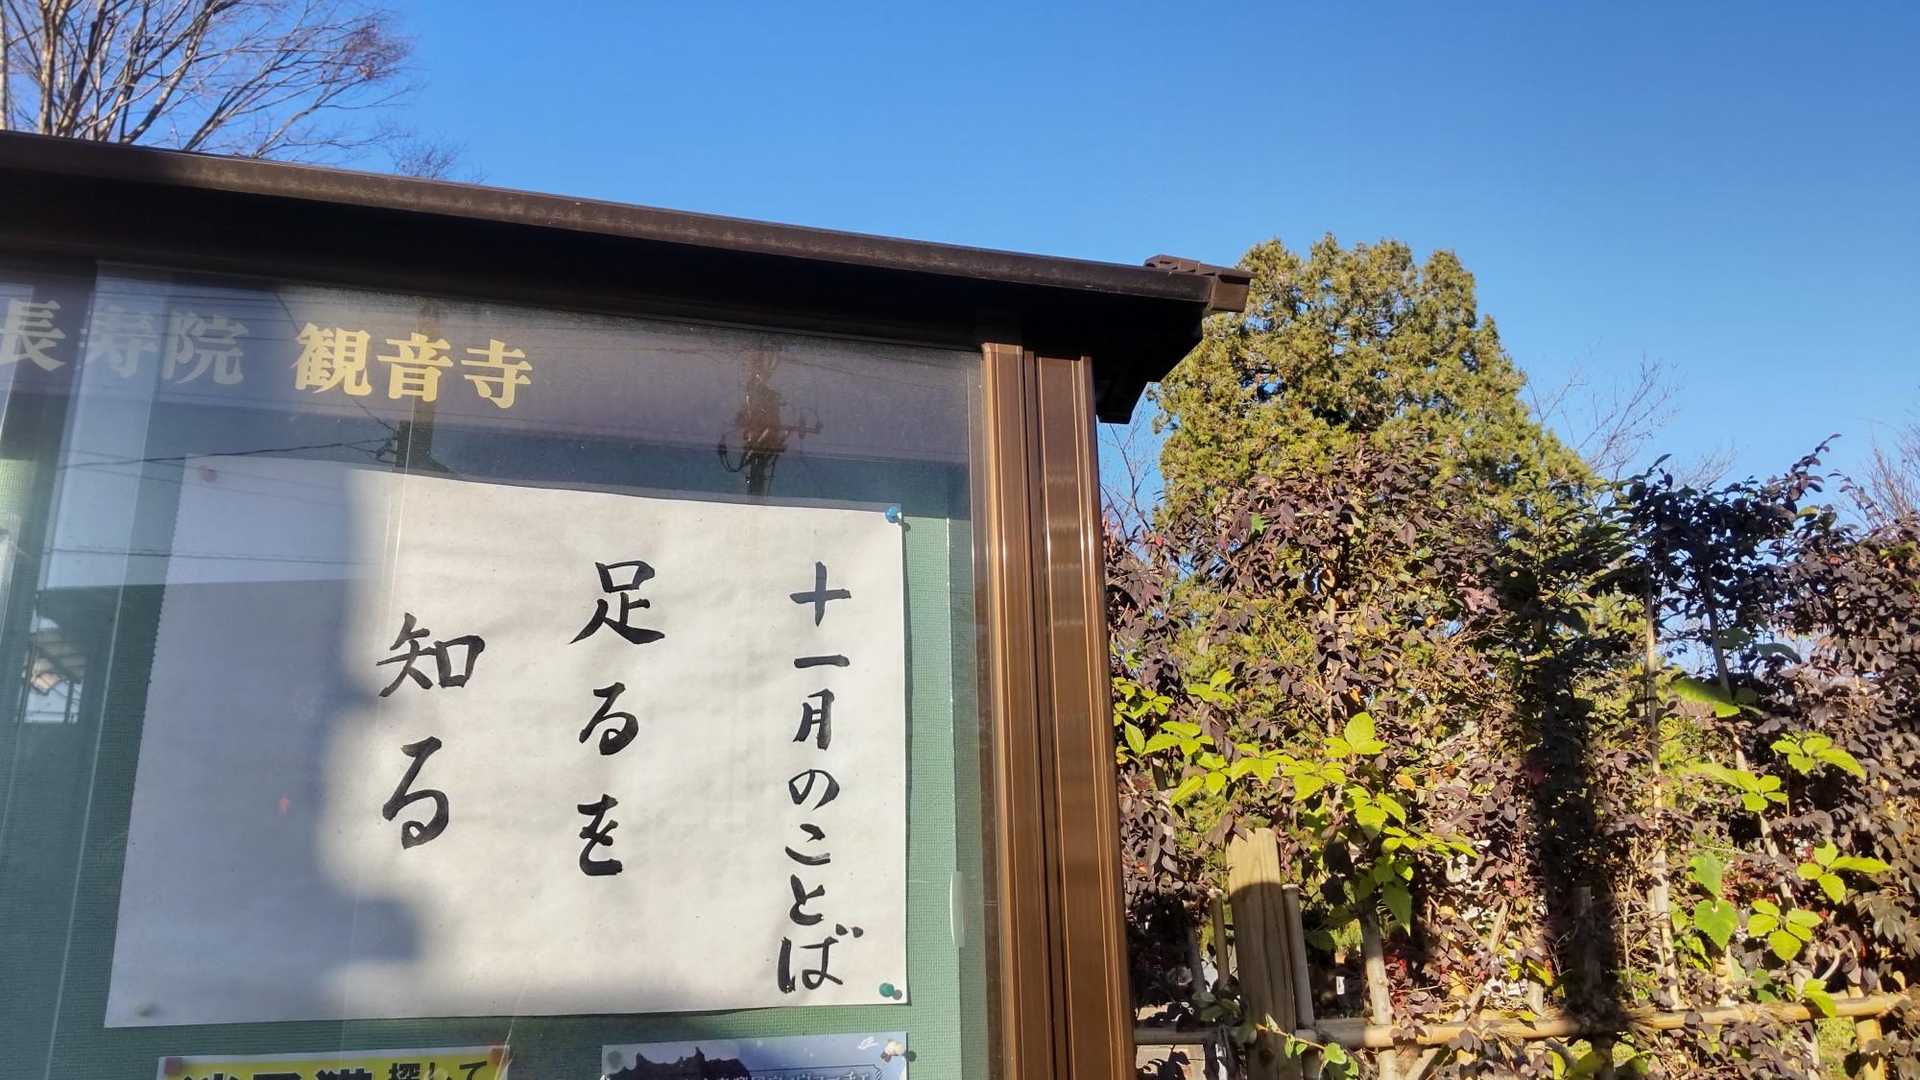 長寿院 観音寺
十一月のことば
足るを
知る
探して